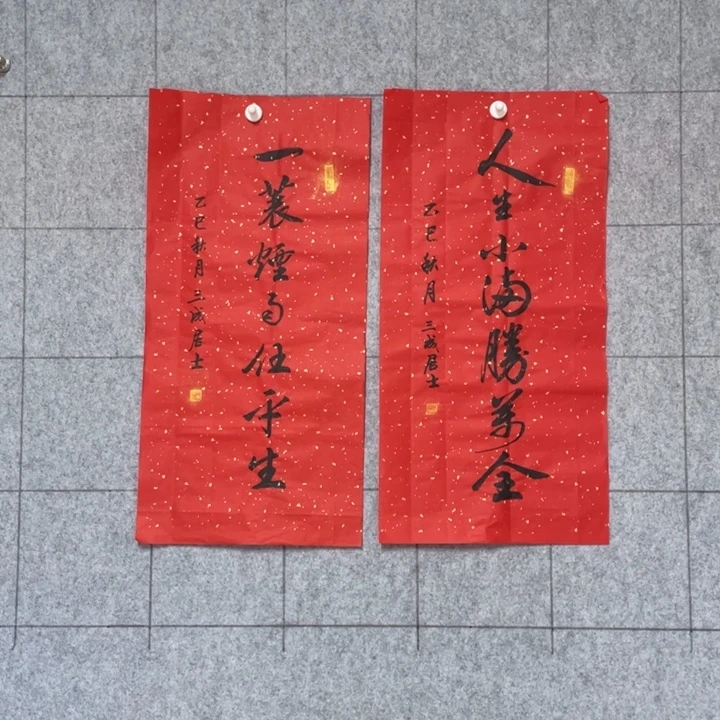 人生小滿勝萬全
乙巳秋月 三成居士
一蓑煙雨任平生
乙巳秋月 三成居士